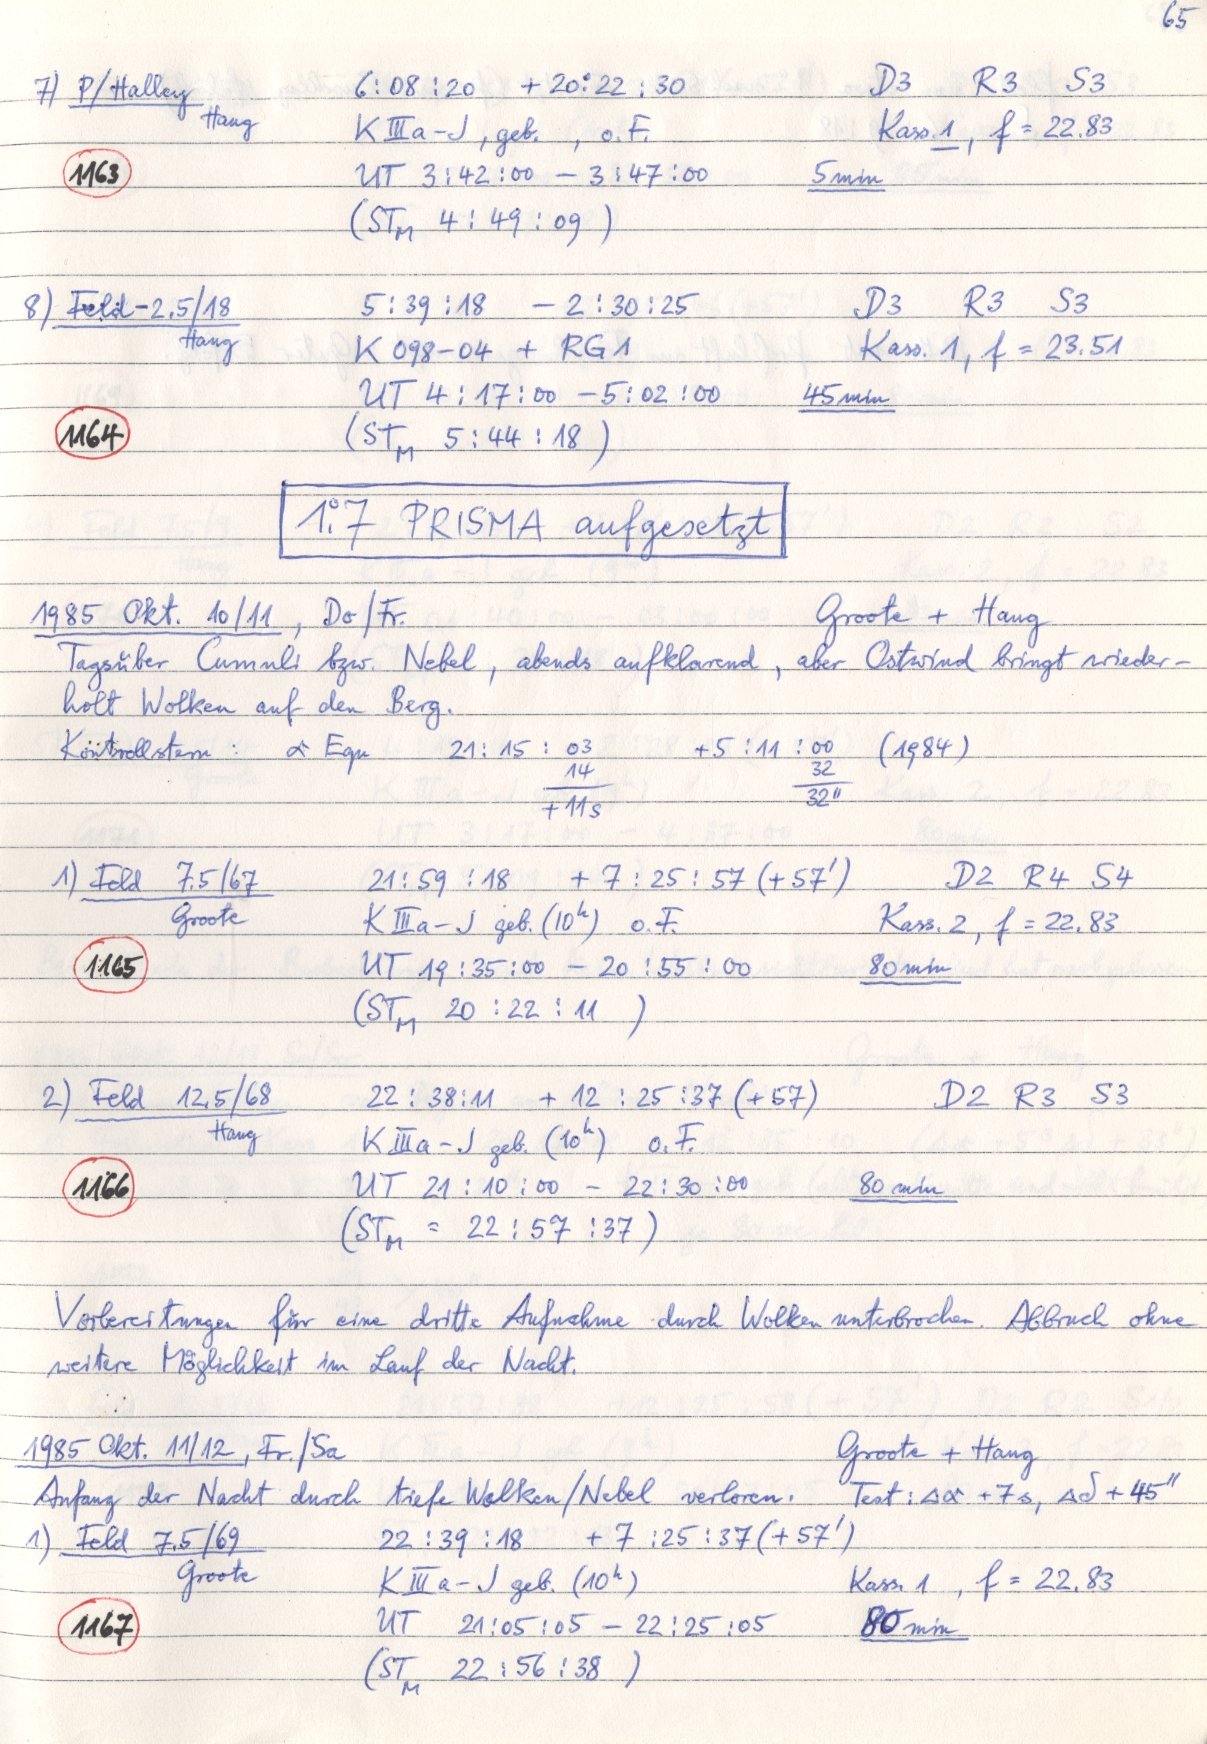 65
7) P/Halley 6:08:20 +20:22:30 D3 R3 S3
Haug K IIIa-J, geb. , o.F. Kass. 1, f = 22.83
1163 UT 3:42:00 - 3:47:00 5min
(ST_M 4:49:09 )
8) Feld -2.5/18 5:39:18 -2:30:25 D3 R3 S3
Haug K 098-04 + RG1 Kass. 1, f = 23.51
UT 4:17:00 - 5:02:00 45min
1164 (ST_M 5:44:18 )
1°.7 PRISMA aufgesetzt
1985 Okt. 10/11, Do/Fr. Groote + Haug
Tagsüber Cumuli bzw. Nebel, abends aufklarend, aber Ostwind bringt wieder-
holt Wolken auf den Berg.
Kontrollstern : α Equ 21:15:03 +5:11:00 (1984)
14 32
+11s 32"
1) Feld 7.5/67 21:59:18 +7:25:57 (+57') D2 R4 S4
Groote K IIIa-J geb. (10h) o.F. Kass. 2, f = 22.83
1165 UT 19:35:00 - 20:55:00 80min
(ST_M 20:22:11 )
2) Feld 12.5/68 22:38:11 +12:25:37 (+57) D2 R3 S3
Haug K IIIa-J geb. (10h) o.F.
1166 UT 21:10:00 - 22:30:00 80min
(ST_M = 22:57:37)
Vorbereitungen für eine dritte Aufnahme durch Wolken unterbrochen. Abbruch ohne
weitere Möglichkeit im Lauf der Nacht.
1985 Okt. 11/12, Fr./Sa Groote + Haug
Anfang der Nacht durch tiefe Wolken/Nebel verloren. Test: Δα +7s, Δδ +45"
1) Feld 7.5/69 22:39:18 +7:25:37 (+57')
Groote K IIIa-J geb. (10h) Kass. 1, f = 22.83
1167 UT 21:05:05 - 22:25:05 80min
(ST_M 22:56:38 )